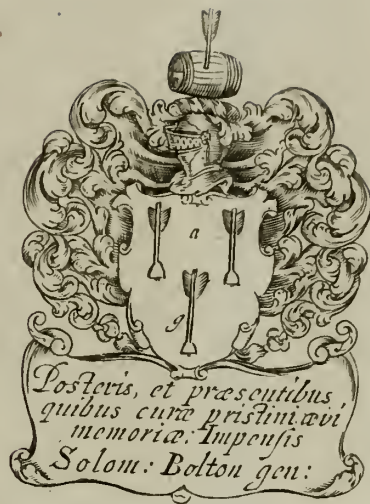 a
g
Posteris, et præsentibus
quibus curæ pristini ævi
memoriæ: Impensis
Solom: Bolton gen: